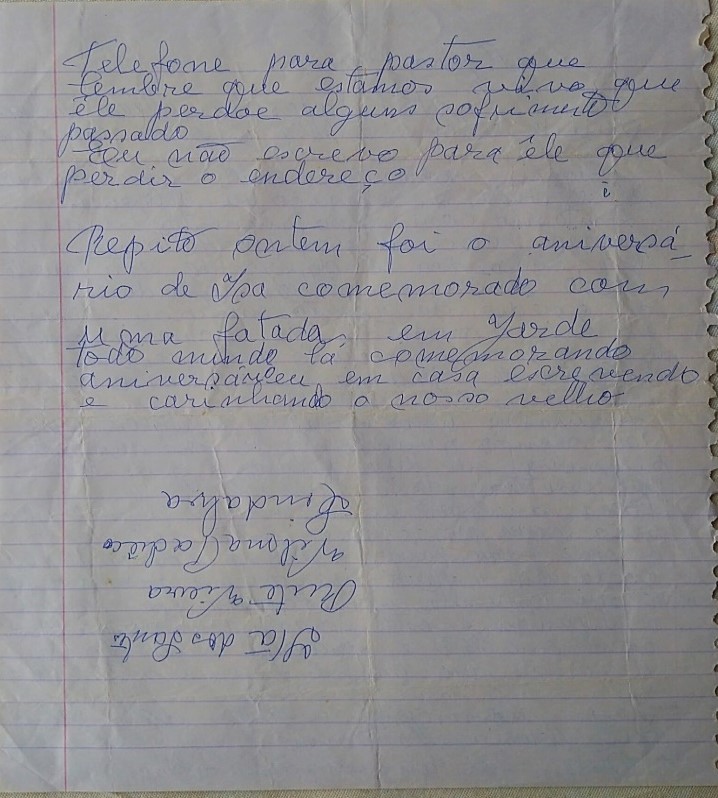 Telefone para pastor que
lembre que estamos vivo, que
êle perdoe alguns sofrimento
passado
Eu não escrevo para êle que
perdir o endereço
Repito ontem foi o aniversá-
rio de Isa comemorado com
uma fatada, em Jarde
todo mundo lá comemorando
aniversáreu em casa escrevendo
e carinhando o nosso velho
Lindalva
Vilma
Rute Vieira
dos Santos